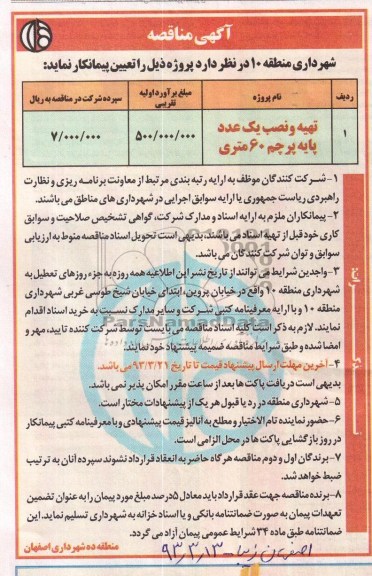 آگهی مناقصه
شهرداری منطقه ۱۰ در نظر دارد پروژه ذیل را تعیین پیمانکار نماید:
ردیف نام پروژه مبلغ برآورد اولیه تقریبی سپرده شرکت در مناقصه به ریال
۱ تهیه و نصب یک عدد پایه پرچم ۶۰ متری ۵۰۰/۰۰۰/۰۰۰ ۷/۰۰۰/۰۰۰
۱- شرکت کنندگان موظف به ارایه رتبه بندی مرتبط از معاونت برنامه ریزی و نظارت
راهبردی ریاست جمهوری یا ارایه سوابق اجرایی در شهرداری های مناطق می باشند.
۲- پیمانکاران ملزم به ارایه اسناد و مدارک شرکت، گواهی تشخیص صلاحیت و سوابق
کاری خود قبل از تهیه اسناد می باشند، بدیهی است تحویل اسناد مناقصه منوط به ارزیابی
سوابق و توان شرکت کنندگان می باشد.
۳- واجدین شرایط می توانند از تاریخ نشر این اطلاعیه همه روزه به جزء روزهای تعطیل به
شهرداری منطقه ۱۰ واقع در خیابان پروین، ابتدای خیابان شیخ طوسی غربی شهرداری
منطقه ۱۰ و با ارایه معرفینامه کتبی شرکت و سایر مدارک نسبت به خرید اسناد اقدام
نمایند. لازم به ذکر است کلیه اسناد مناقصه می بایست توسط شرکت کننده تایید، مهر و
امضا شده و طبق شرایط مناقصه ضمیمه پیشنهاد خود نمایند.
۴- آخرین مهلت ارسال پیشنهاد قیمت تا تاریخ ۹۳/۳/۲۱ می باشد.
بدیهی است دریافت پاکت ها بعد از ساعت مقرر امکان پذیر نمی باشد.
۵- شهرداری منطقه در رد یا قبول هر یک از پیشنهادات مختار است.
۶- حضور نماینده تام الاختیار و مطلع به آنالیز قیمت پیشنهادی و با معرفینامه کتبی پیمانکار
در روز بازگشایی پاکت ها در محل الزامی است.
۷- برندگان اول و دوم مناقصه هرگاه حاضر به انعقاد قرارداد نشوند سپرده آنان به ترتیب
ضبط خواهد شد.
۸- برنده مناقصه جهت عقد قرارداد باید معادل ۵ درصد مبلغ مورد پیمان را به عنوان تضمین
تعهدات پیمان به صورت ضمانتنامه بانکی و یا اسناد خزانه به شهرداری تسلیم نماید. این
ضمانتنامه طبق ماده ۳۴ شرایط عمومی پیمان آزاد می گردد.
منطقه ده شهرداری اصفهان
اصفهان زیبا - ۹۳/۳/۱۳